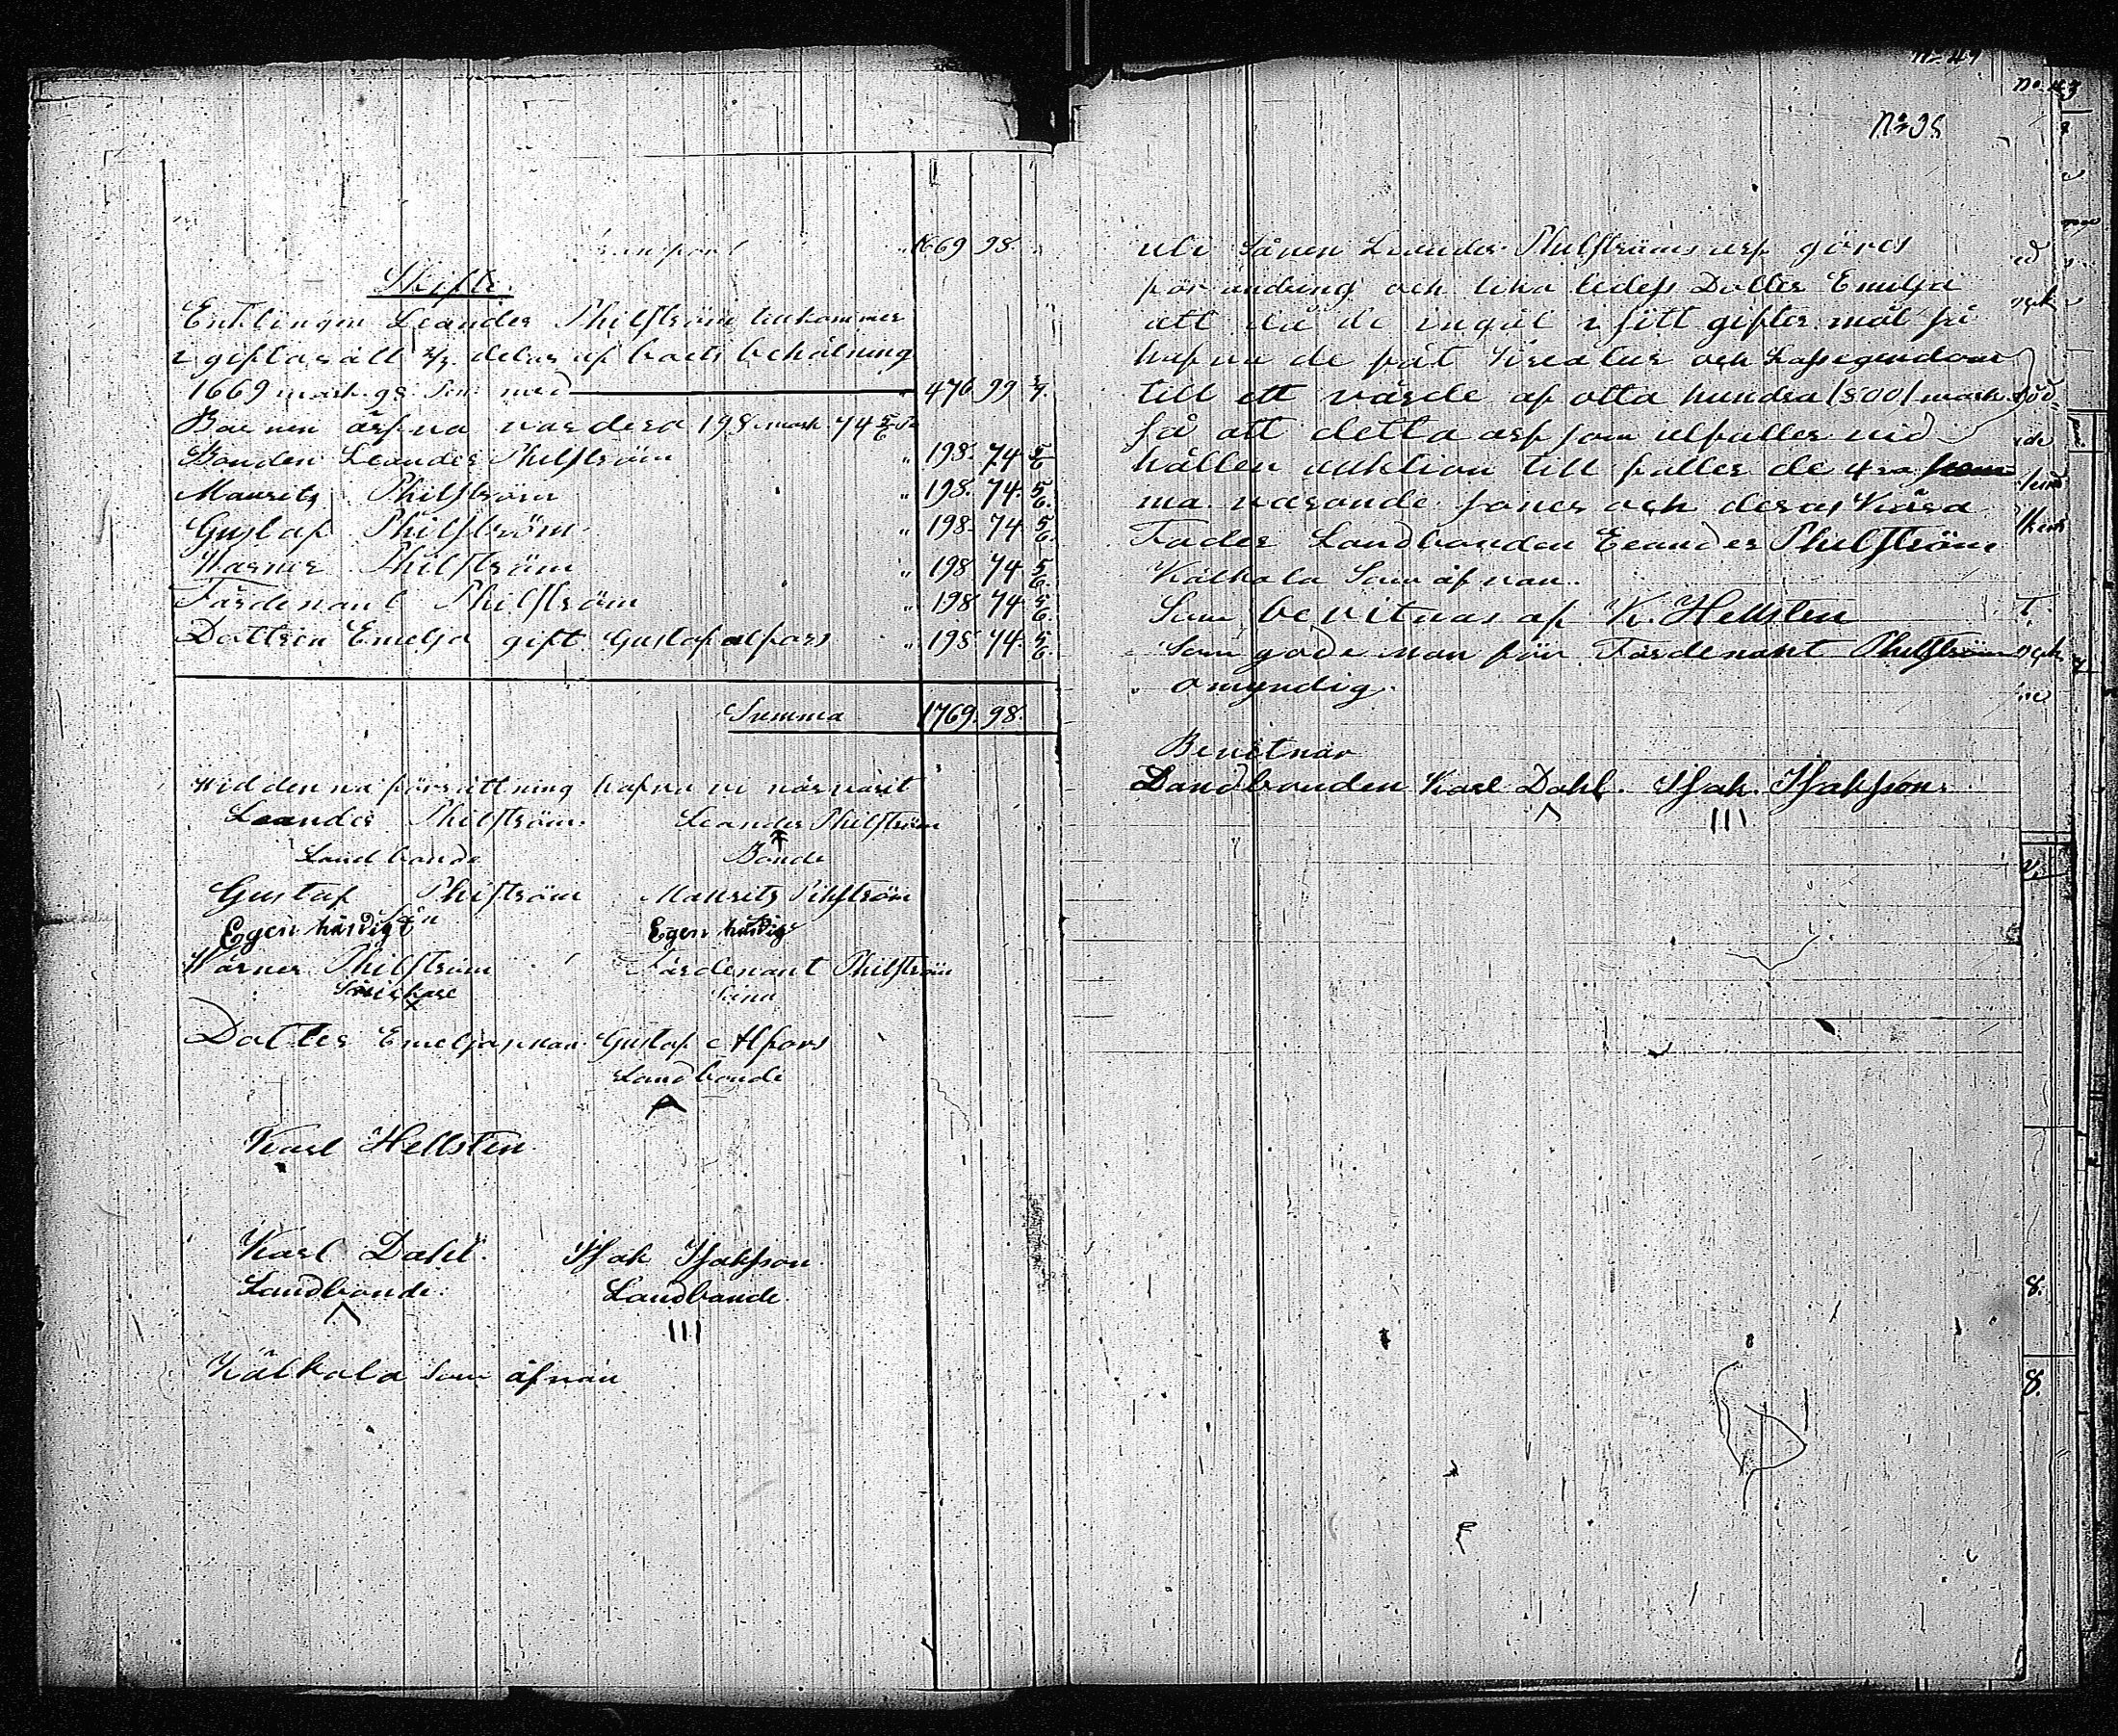 Transport " 1669 98.
Skifte.
Enklingen Leander Philström tilkommer
i giftorätt 2/7 delar af boets behålning
1669 mark 98 pen. med 476 99 3/7.
Barnen ärfva vardera 198 mark 74 5/6
Bonden Leander Philström " 198. 74 5/6
Maurits Philström " 198. 74. 5/6.
Gustaf Philström " 198. 74 5/6.
Warner Philström " 198 74 5/6.
Färdenant Philström " 198 74 5/6.
Dottren Emelja gift Gustaf alfors " 198. 74. 5/6.
Summa 1769. 98.
Wid denna försättning hafva vi närvarit
Leander Philström Leander Philström
Landbonde Bonde
Gustaf Philström Maurits Philström
Son
Egenhändigt Egenhändig
Wärner Philström Färdenant Philström
Dotter Emeljas man Gustaf Alfors
Landbonde
Karl Hellsten
Karl Dahl. Isak Isaksson
Landbonde. Landbonde.
III
Kälkala som åfvan
No 43
No 98
uti Sånen Leander Philströms arf göres
förändring och lika ledes Dotter Emelja
att då de ingåt i sitt giftermål så
hafva de fåt kreatur och Lössegendom
till ett värde af åtta hundra /800/ mark
så att detta arf som utfaller vid
hållen auktion till faller de 4ra hem
ma varande söner och deras Kära
Fader Landbonden Leander Philström
Kälkala Som åfvan.
Som bevitnas af K. Hellsten
Som gode man för Färdenant Philström
omyndig.
Bevitnar
Landbonden Karl Dahl. Isak. Isaksson.
III
8.
8.